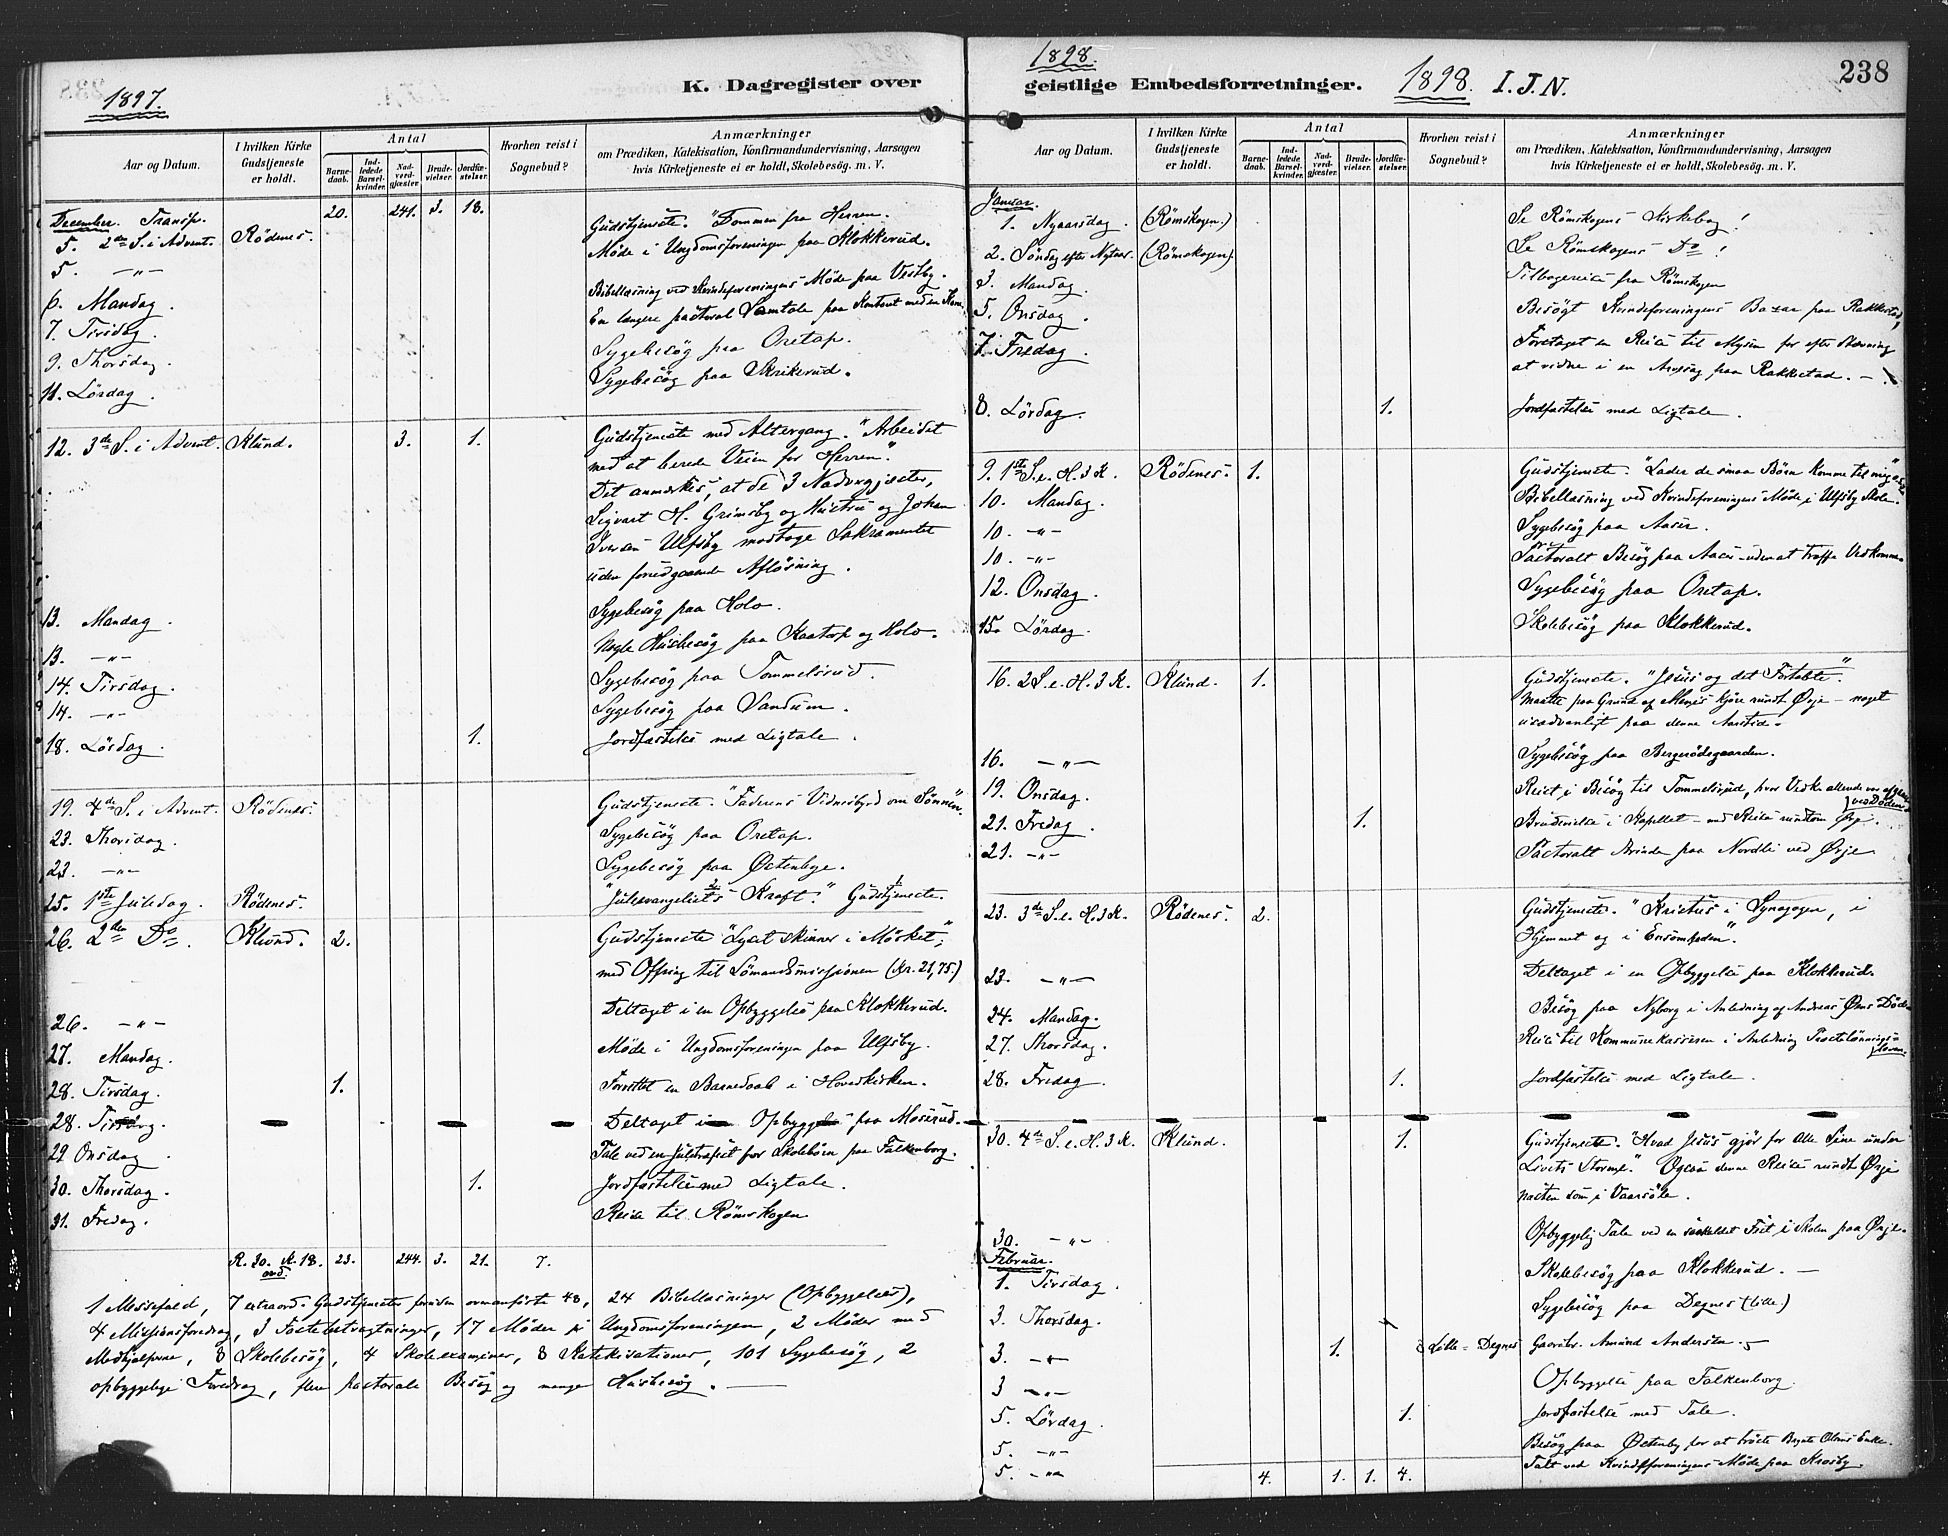 1897.
K. Dagregister over
Aar og Datum.
I hvilken Kirke Gudstjeneste er holdt.
Antal
Barnedaab.
Indledede Barselkvinder.
Nadverdgjæster.
Brudevielser.
Jordfæstelser.
Hvorhen reist i Sognebud?
Anmærkninger
om Prædiken, Katekisation, Konfirmandundervisning, Aarsagen
hvis Kirketjeneste ei er holdt, Skolebesøg. m. V.
December. Transp. 20. 241. 3. 18.
5. 2den S. i Advent. Rödenes. Gudstjeneste. "Dommen fra Herren.
5. —"— Møde i Ungdomsforeningen paa Klokkerud.
6. Mandag. Bibellæsning ved Kvindeforeningens Møde paa Vestby.
7. Tirsdag. En længere pastoral Samtale paa Kontoret med en Kone
9. Thorsdag. Sygebesög paa Oretap.
11. Lördag. Sygebesög paa Skrikerud.
12. 3de S. i Advent. Klund. 3. 1. Gudstjeneste med Altergang. "Arbeidet
med at berede Veien for Herren."
Det anmerkes, at de 3 Nadvergjester,
Sigvart H. Grimsby og Hustru og Johan
Iversen Ulfsby modtoge Sakramentet
uden forudgaaende Aflösning.
13. Mandag. Sygebesög paa Holo.
13. —"— Nogle Husbesög paa Kaatorp og Holo.
14. Tirsdag. Sygebesög paa Tommelsrud.
14. —"— Sygebesög paa Sandum.
18. Lörday. 1. Jordfæstelse med Ligtale.
19. 4de S. i Advent. Rödenes. Gudstjeneste. "Faderens Vidnesbyrd om Sönnen."
23. Thorsdag. Sygebesög paa Oretap.
23. —"— Sygebesög paa Østenbye.
25. 1ste Juledag. Rödenes. "Juleevangeliets Kraft." Gudstjeneste.
26. 2den Do. Klund. 2. Gudstjeneste "Lyset skinner i Mörket",
med Offring til Sömandsmissionen (Kr. 21,75.)
26. —"— Deltaget i en Opbyggelse paa Klokkerud.
27. Mandag. Møde i Ungdomsforeningen paa Ulfsby.
28. Tirsdag. 1. Forrettet en Barnedaab i Hovedkirken.
28. Tirsdag. Deltaget i en Opbyggelse paa Moserud.
29 Onsdag. Tale ved en Juletræfest for Skolebörn paa Falkenborg.
30. Thorsdag. 1. Jordfæstelse med Ligtale.
31. Fredag. Reise til Römskogen
R. 30. K. 18. 23. 244. 3. 21. 7.
ord.
1 Messefald, 7 extraord. Gudstjenester foruden ovenanførte 48, 24 Bibellæsninger (Opbyggelser),
4 Missionsforedrag, 3 Fastebetragtninger, 17 Möder i Ungdomsforeningen, 2 Möder med
Medhjælperne, 8 Skolebesög, 4 Skoleexaminer, 8 Katekisationer, 101 Sygebesög, 2
opbyggelige Foredrag, flere pastorale Besög og mange Husbesög. —
1898.
geistlige Embedsforretninger.
1898. I. J. N.
238
Aar og Datum.
I hvilken Kirke Gudstjeneste er holdt.
Antal
Barnedaab.
Indledede Barselkvinder.
Nadverdgjæster.
Brudevielser.
Jordfæstelser.
Hvorhen reist i Sognebud?
Anmærkninger
om Prædiken, Katekisation, Konfirmandundervisning, Aarsagen
hvis Kirketjeneste ei er holdt, Skolebesøg. m. V.
Januar.
1. Nyaarsdag. (Römskogen.) Se Römskogens Kirkebog!
2. Söndag efter Nytaar. (Römskogen). Se Römskogens Do!
3. Mandag. Tilbagereise fra Römskogen
5. Onsdag. Besögt Kvindeforeningens Bazar paa Rakkestad,
7. Fredag. Foretaget en Reise til Mysen for efter Stevning
at vidne i en Arvesag paa Rakkestad. —
8. Lördag. 1. Jordfæstelse med Ligtale.
9. 1ste S. e. H. 3 K. Rödenes. 1. Gudstjeneste. "Lader de smaa Börn komme til mig"
10. Mandag. Bibellæsning ved Kvindeforeningens Møde i Ulfsby Skole.
10. —"— Sygebesög paa Aaser.
10. —"— Pastoralt Besög paa Aaser uden at træffe Vedkomm.
12. Onsdag. Sygebesög paa Oretap.
15. Lördag. Skolebesög paa Klokkerud.
16. 2 S. e. H. 3 K. Klund. 1. Gudstjeneste. "Jesus og det Fortabte."
Maatte paa Grund af Menis kjöre rundt Ørje — noget
usædvanligt paa denne Aarstid.
16. —"— Sygebesög paa Bergerödegaarden.
19. Onsdag. Reist i Besög til Tommelsrud, hvor Vedkommende var afgaaet
ved Döden.
21. Fredag. 1. Brudevielse i Kapellet — med Reise rundtom Ørje.
21. —"— Pastoralt Ærinde paa Nordli ved Ørje
23. 3de S. e. H. 3 K. Rödenes. 2. Gudstjeneste. "Kristus i Synagogen, i
Hjemmet og i Ensomheden".
23. —"— Deltaget i en Opbyggelse paa Klokkerud.
24. Mandag. Besög paa Nyborg i Anledning af Andreas Öens Död.
27. Thorsdag. Reise til Kommunekasseren i Anledning Præstelönnings-
loven.
28. Fredag. 1. Jordfæstelse med Ligtale.
30. 4de S. e. H. 3 K. Klund. 1. Gudstjeneste. "Hvad Jesus gjör for alle Sine under
Livets Storme." Ogsaa denne Reise rundt Ørje
næsten som i Vaarsöle.
30. —"— Opbyggelig Tale ved en saakaldet Fest i Skolen paa Ørje.
Februar.
1. Tirsdag. Skolebesög paa Klokkerud. —
3. Thorsdag. Sygebesög paa Degnes (lille)
3. —"— 1. Lille-Degnes Gaardbr. Amund Andersen.
3 —"— Opbyggelse paa Falkenborg.
5. Lördag. 1. Jordfæstelse med Tale.
5. —"— Besög paa Østenby for at tröste Olaus Enke.
5. —"— Talt ved Kvindeforeningens Møde paa Krosby.
4. 1. 1. 4.